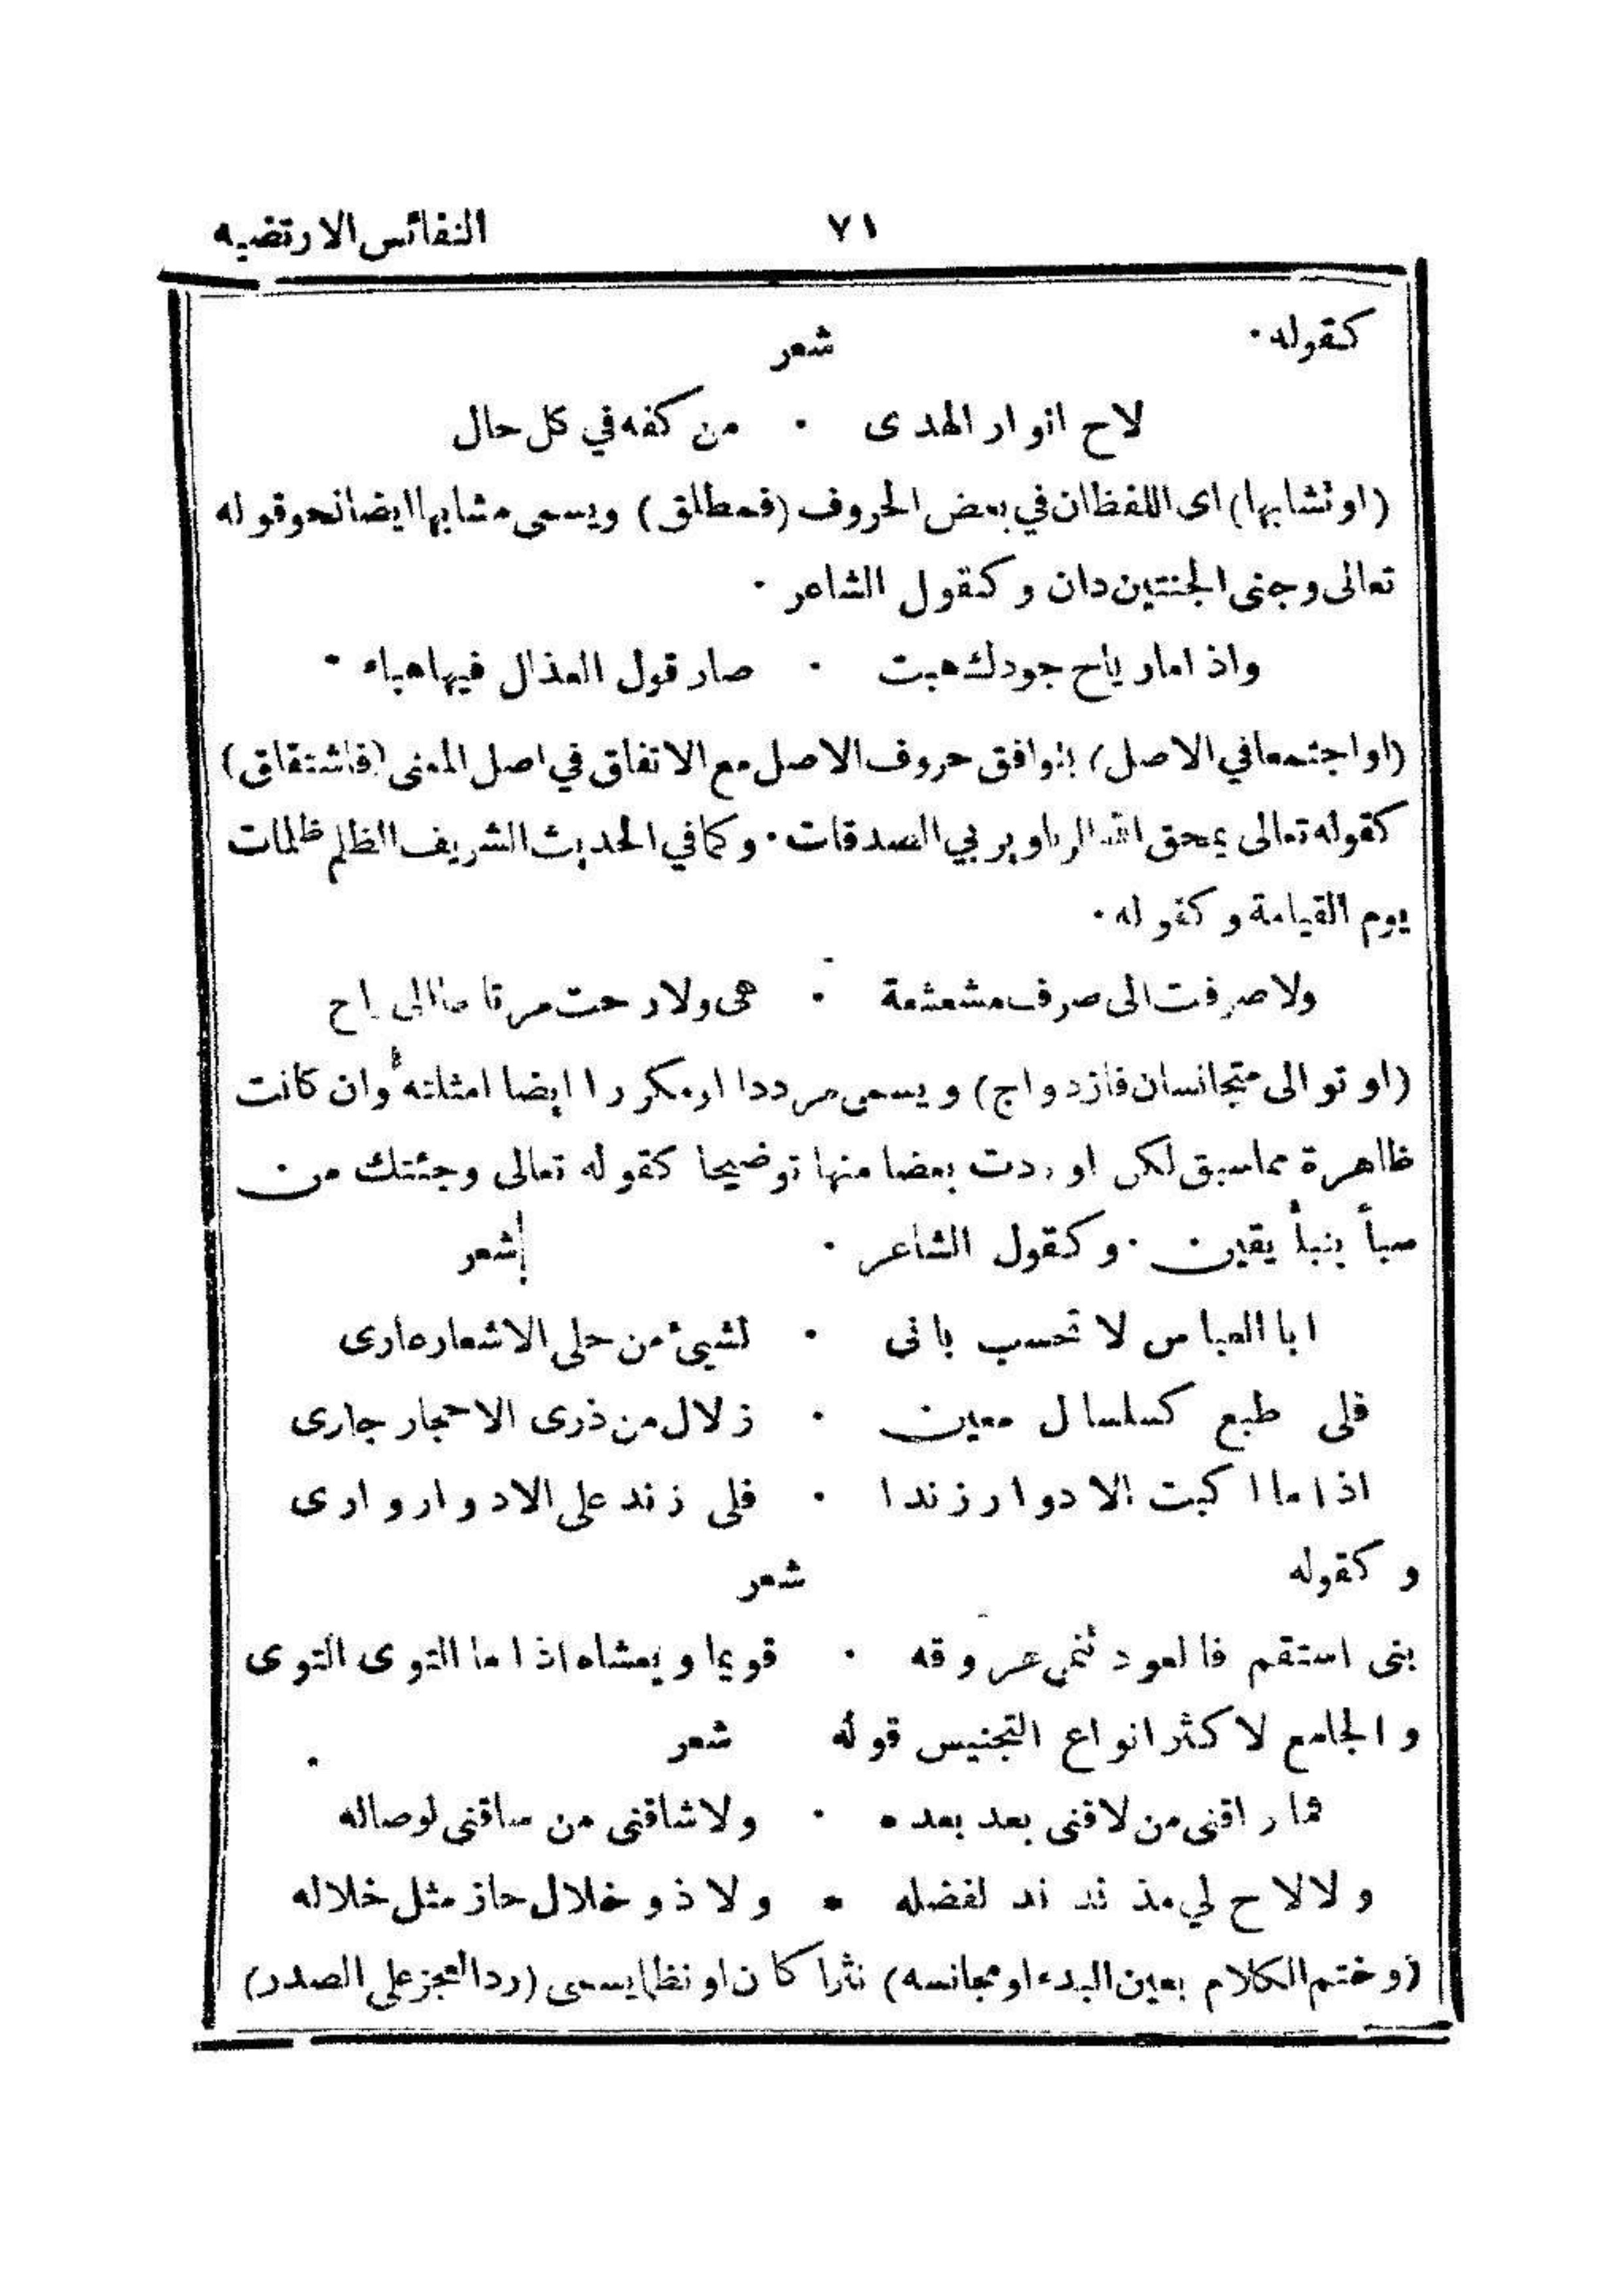 النفائس الارتضيه ٧١
كقوله · شعر
لاح انوار الهدى · من كفه في كل حال
(او تشابها) اى اللفظان في بعض الحروف (فمطلق) ويسمى مشابها ايضا نحو قوله
تعالى وجنى الجنتين دان وكقول الشاعر ·
واذا ما رياح جودك هبت · صار قول العذال فيها هباء ·
(او اجتمعا في الاصل) بتوافق حروف الاصل مع الاتفاق في اصل المعنى (فاشتقاق)
كقوله تعالى يمحق الله الربا ويربي الصدقات · وكما في الحديث الشريف الظلم ظلمات
يوم القيامة وكقوله ·
ولا صرفت الى صرف مشعشعة · همى ولا رحت مرتاحا الى راح
(او توالى متجانسان فازدواج) ويسمى مرددا او مكررا ايضا امثلته وان كانت
ظاهرة مما سبق لكن اوردت بعضا منها توضيحا كقوله تعالى وجئتك من
سبأ بنبأ يقين · وكقول الشاعر · شعر
ابا العباس لا تحسب بانى · لشيئ من حلى الاشعار عارى
فلى طبع كسلسال معين · زلال من ذرى الاحجار جارى
اذا ما اكبت الادوار زندا · فلى زند على الادوار وارى
وكقوله شعر
بنى استقم فالعود تنمى عروقه · قويما ويغشاه اذا ما التوى التوى
والجامع لاكثر انواع التجنيس قوله شعر ·
فما راقنى من لاقنى بعد بعده · ولا شاقنى من ساقنى لوصاله
ولا لاح لي مذ ند ند لفضله · ولا ذو خلال حاز مثل خلاله
(وختم الكلام بعين البدء او مجانسه) نثرا كان او نظما يسمى (رد العجز على الصدر)